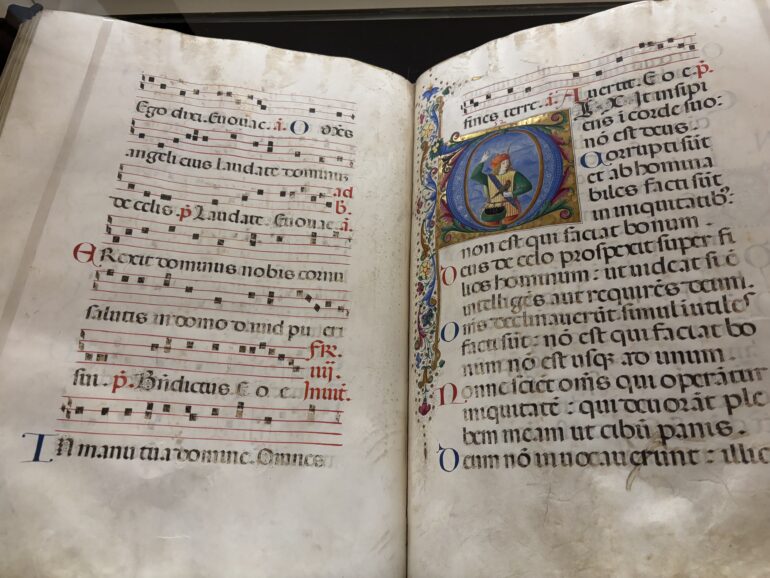 Ego dixi. Euouae. a. Omnes
angeli eius laudate dominum
de celis. p. Laudate. Euouae. a.
ad
b.
Erexit dominus nobis cornu
salutis in domo dauid pueri
sui. p. Bñdictus. E o e.
FR.
iiij.
Inuit.
In manu tua domine. Omnes
fines terre. a. Auertit. E o e. p.
Ix it insipi
ens i corde suo:
nō est deus.
Corrupti sūt
et ab homina
biles facti sūt
in iniquitatib9:
non est qui faciat bonum.
Deus de celo prospexit super fi
lios hominum: ut uideat si ē
intelligēs aut requirēs deum.
Oms declinauerūt simul iutiles
facti sūt: nō est qui faciat bo
num nō est usqʒ ad unum
Nonne sciēt oms qui operātur
iniquitatē: qui deuorāt ple
bem meam ut cibū panis.
Deum nō inuocauerunt: illic